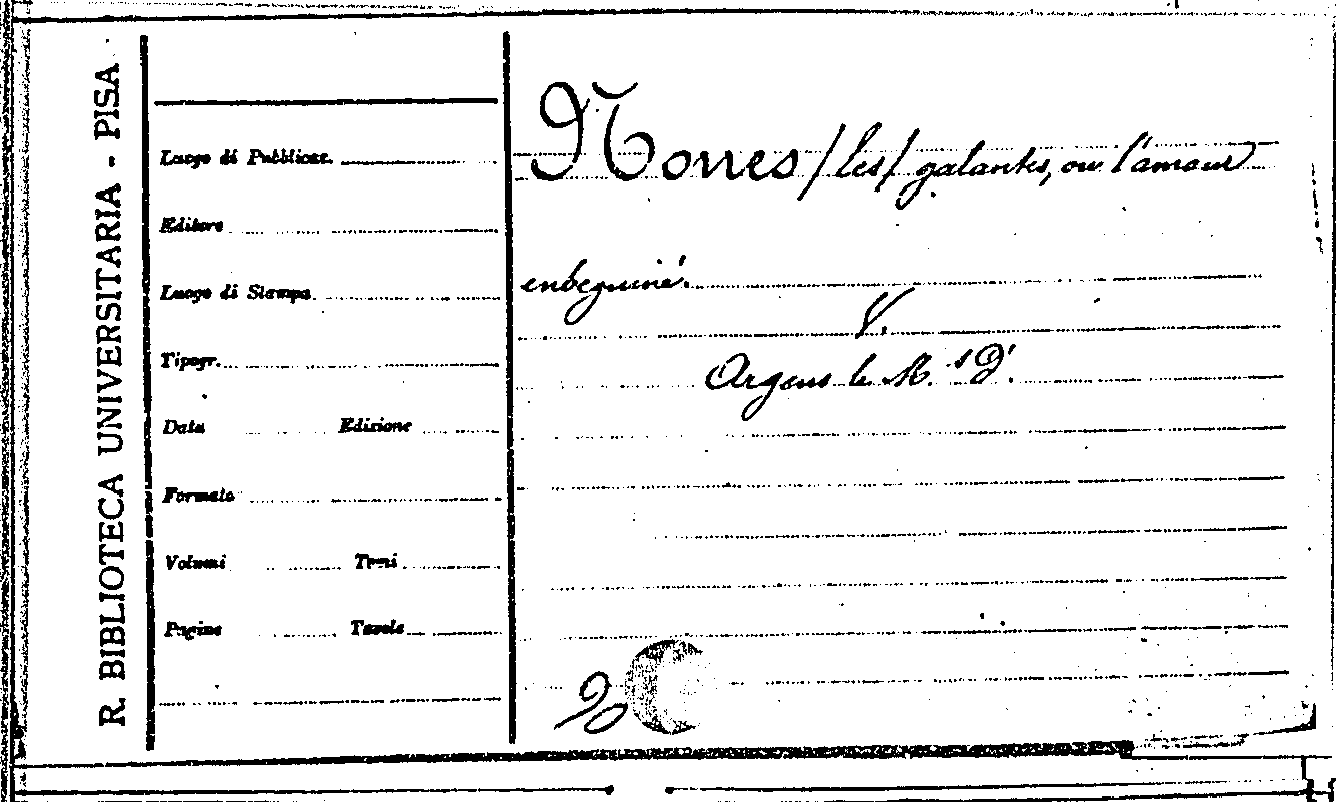 R. BIBLIOTECA UNIVERSITARIA - PISA
Luogo di Pubblicaz.
Editore
Luogo di Stampa
Tipogr.
Data Edizione
Formato
Volumi Tomi
Pagine Tavole
Nonnes /les/ galantes, ou l'amour
enbeguiné.
V.
Argens le M.is D'.
20